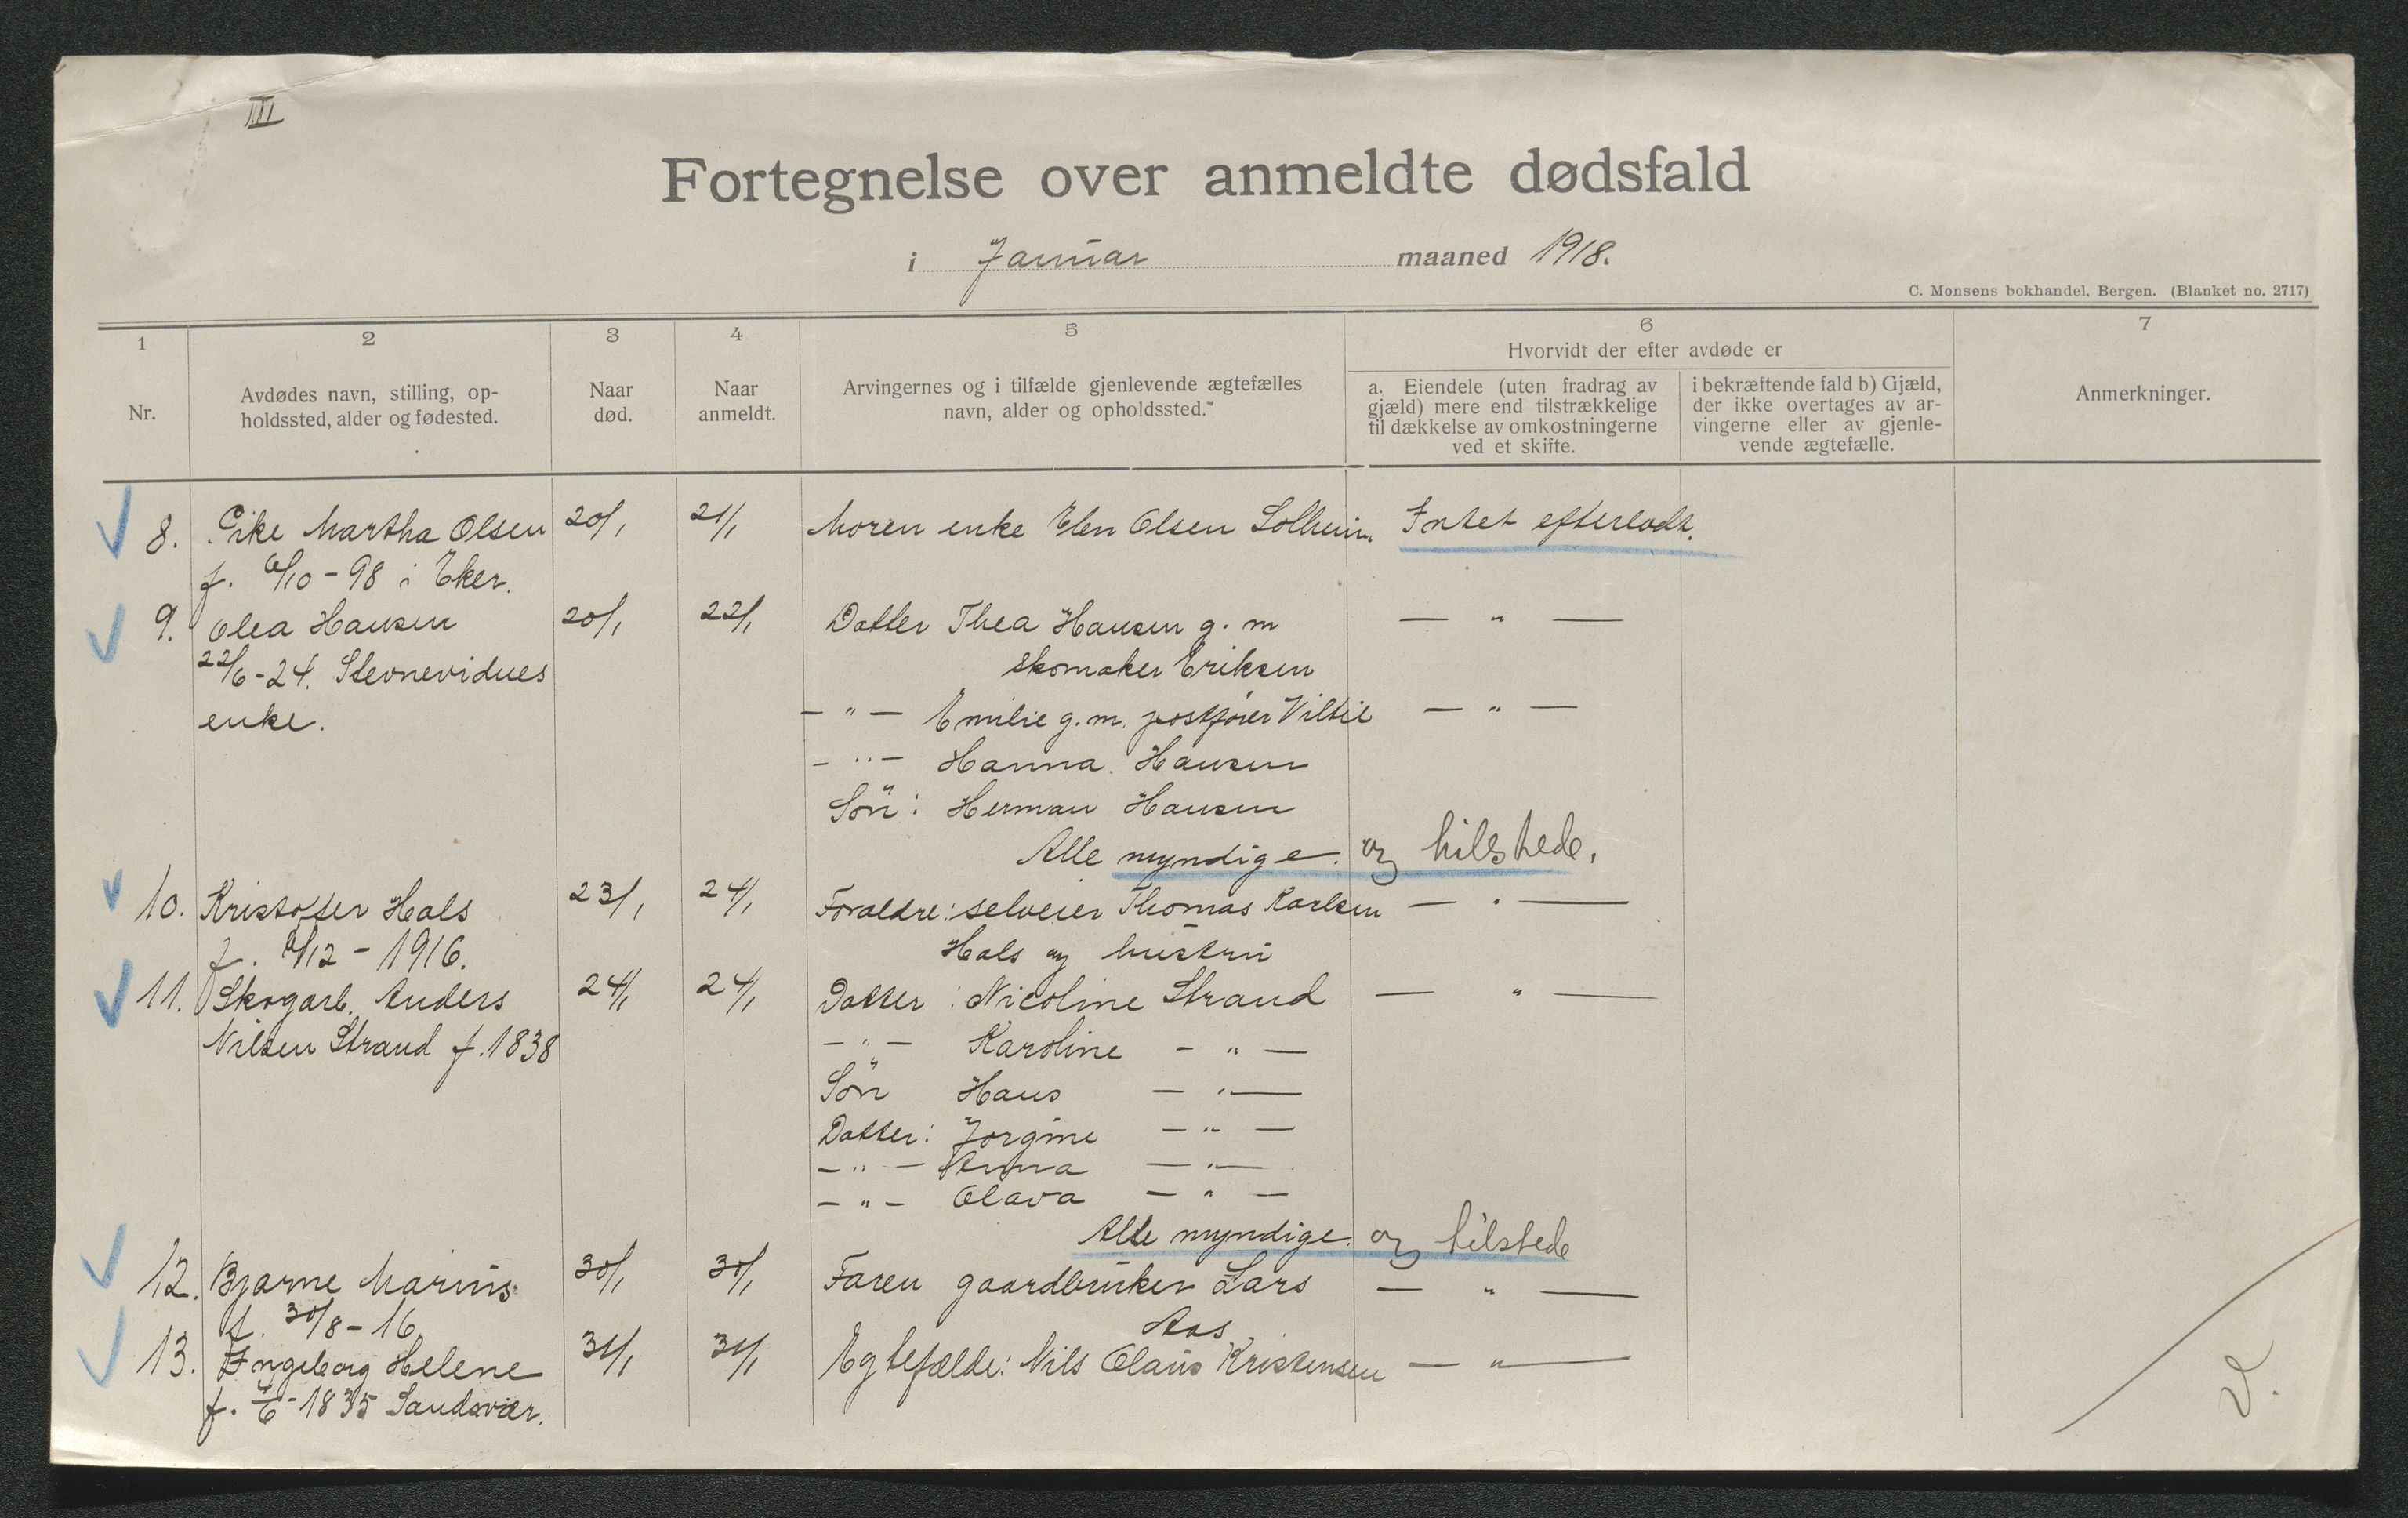 III
Fortegnelse over anmeldte dødsfald
i Januar maaned 1918.
C. Monsens bokhandel, Bergen. (Blanket no. 2717)
1 2 3 4 5 6 7
Hvorvidt der efter avdøde er
Nr.
Avdødes navn, stilling, op-
holdssted, alder og fødested.
Naar
død.
Naar
anmeldt.
Arvingernes og i tilfælde gjenlevende ægtefælles
navn, alder og opholdssted.
a. Eiendele (uten fradrag av
gjæld) mere end tilstrækkelige
til dækkelse av omkostningerne
ved et skifte.
i bekræftende fald b) Gjæld,
der ikke overtages av ar-
vingerne eller av gjenle-
vende ægtefælle.
Anmerkninger.
8. Pike Martha Olsen 20/1 21/1 Moren enke Elen Olsen Solheim. Intet efterladt.
f. 6/10-98 i Eker.
9. Olea Hansen 20/1 22/1 Datter Thea Hansen g. m — " —
22/6-24. Stevnevidnes skomaker Eriksen
enke. — " — Emilie g. m. postfører Viltil — " —
— " — Hanna Hansen
Søn: Herman Hansen
Alle myndige. og tilstede.
10. Kristoffer Hals 23/1 24/1 Foraldre: selveier Thomas Karlsen — " —
f. /12 - 1916. Hals og hustru
11. Skogarb. Anders 24/1 24/1 Datter: Nicoline Strand — " —
Nilsen Strand f. 1838 — " — Karoline — " —
Søn Hans — " —
Datter: Jorgine — " —
— " — Anna — " —
— " — Olava — " —
Alle myndige. og tilstede
12. Bjarne Marius 30/1 30/1 Faren gaardbruker Lars — " —
f. 30/8-16 Aas
13. Ingeborg Helene 31/1 31/1 Egtefælde: Nils Olaus Kristensen — " —
f. 4/6-1835 Sandsvær.